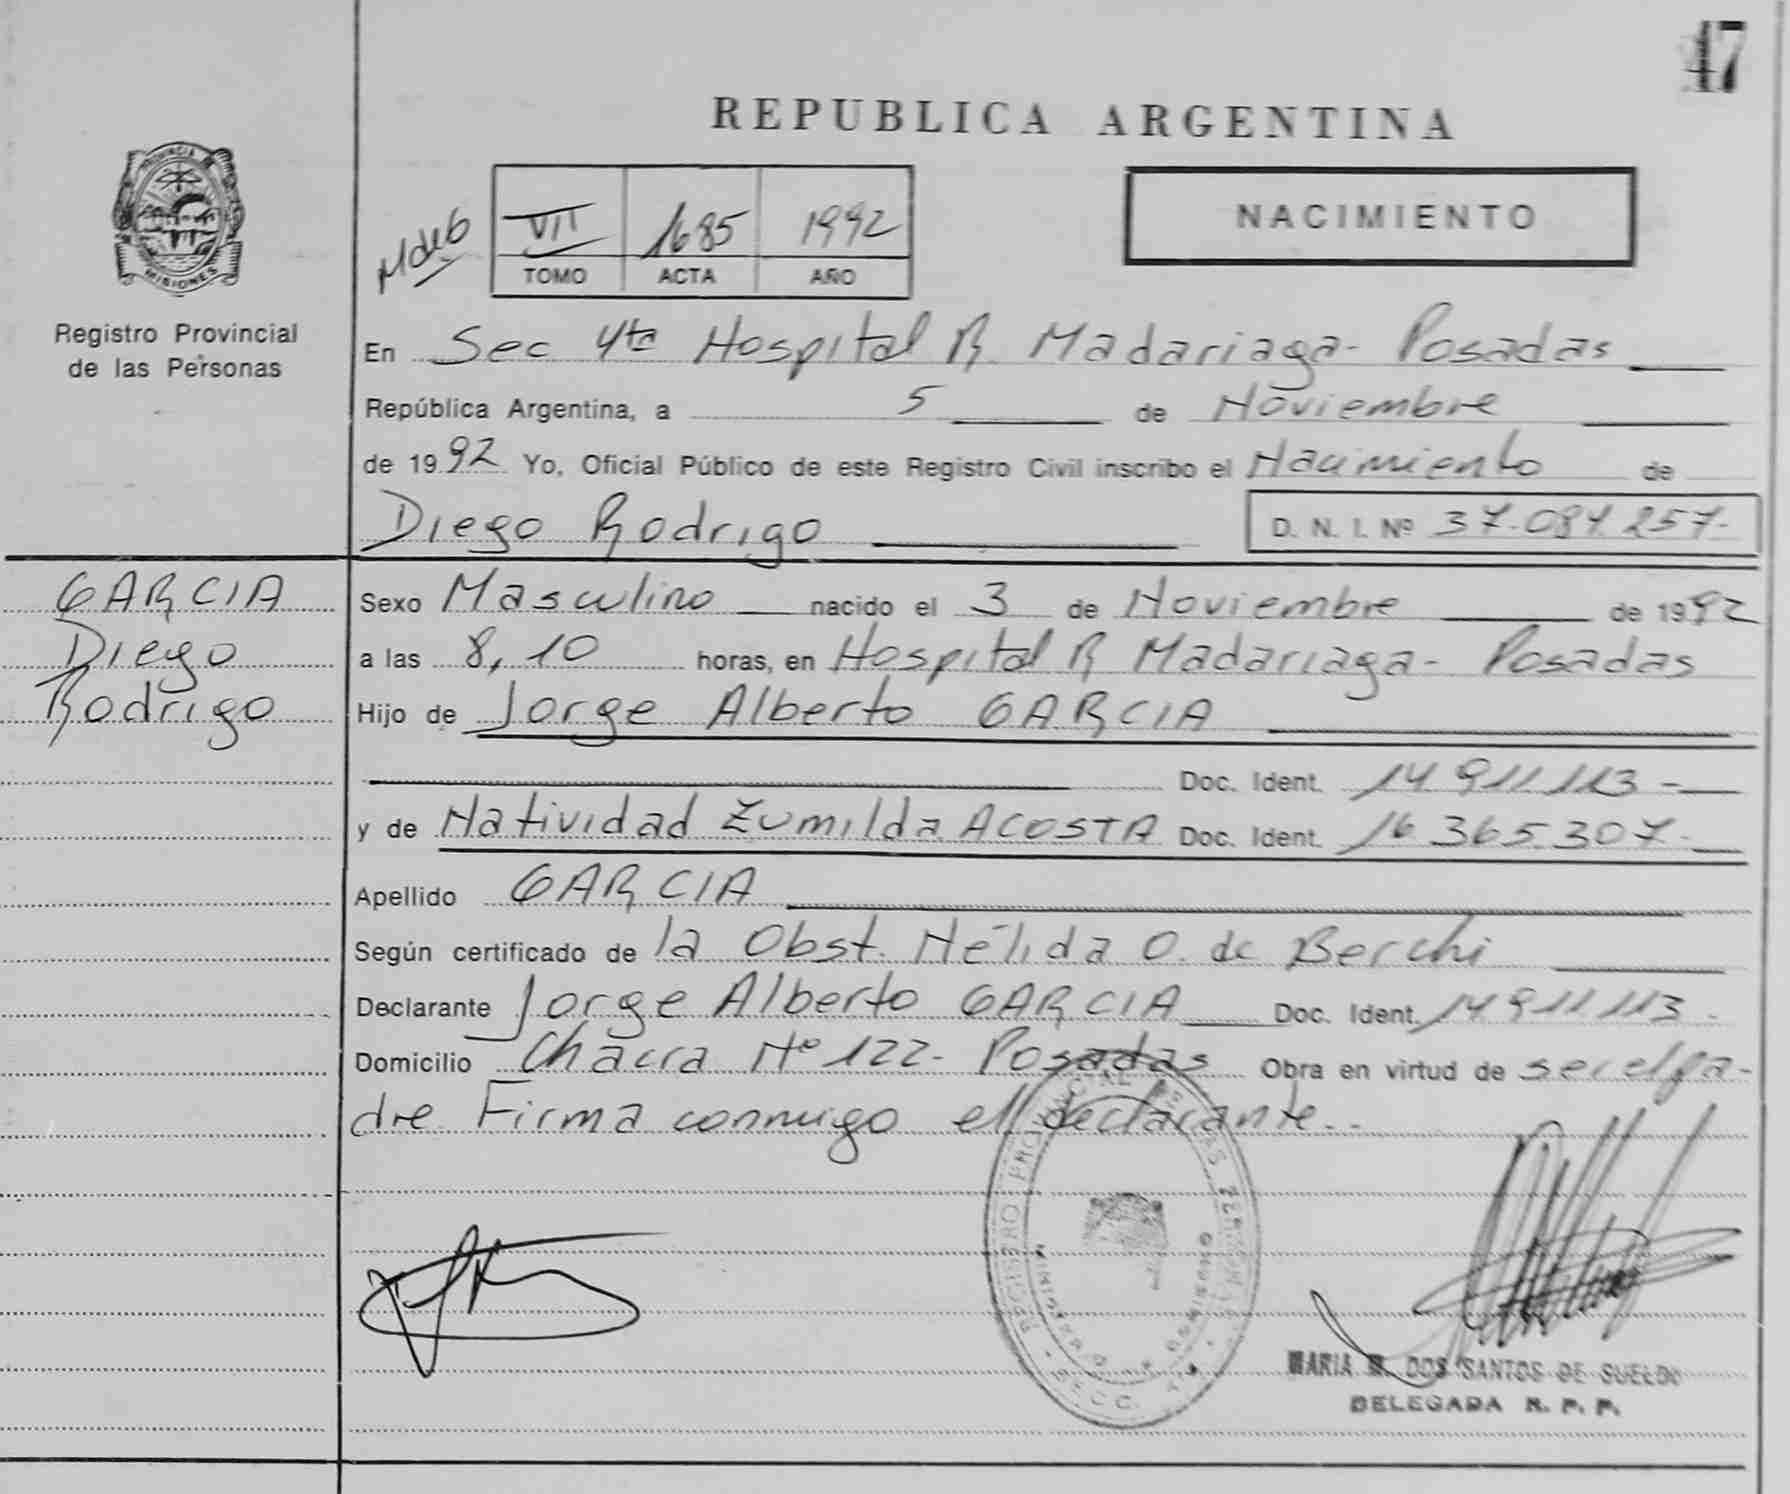 47
REPUBLICA ARGENTINA
PROVINCIA DE
MISIONES
Registro Provincial
de las Personas
VII 1685 1992
TOMO ACTA AÑO
NACIMIENTO
En Sec 4ta Hospital R. Madariaga - Posadas
República Argentina, a 5 de Noviembre
de 1992 Yo, Oficial Público de este Registro Civil inscribo el Nacimiento de
Diego Rodrigo D. N. I. Nº 37.084.257-
GARCIA
Diego
Rodrigo
Sexo Masculino nacido el 3 de Noviembre de 1992
a las 8,10 horas, en Hospital R Madariaga - Posadas
Hijo de Jorge Alberto GARCIA
Doc. Ident. 14.911.113-
y de Natividad Zumilda ACOSTA Doc. Ident. 16.365.307-
Apellido GARCIA
Según certificado de la Obst. Nélida O. de Berchi
Declarante Jorge Alberto GARCIA Doc. Ident. 14.911.113-
Domicilio Chacra Nº 122- Posadas Obra en virtud de ser el pa-
dre. Firma conmigo el declarante.-
REGISTRO PROVINCIAL DE LAS PERSONAS
MINISTERIO DE GOBIERNO
SECC.
MARIA M. DOS SANTOS DE SUELDO
DELEGADA R. P. P.